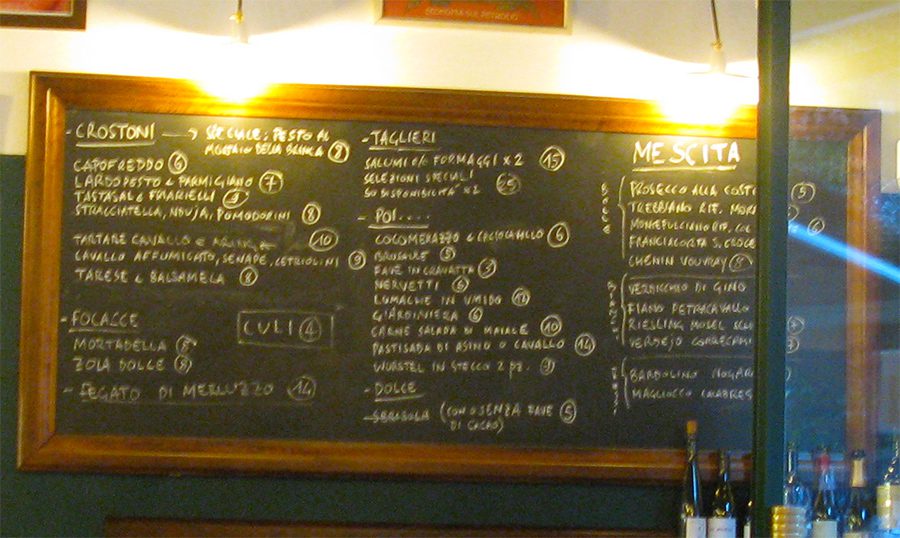 ECONOMIA SUL PETROLIO
- CROSTONI → SPECIALE: PESTO AL
MORTAIO DELLA BIANCA 8
CAPOFREDDO 6
LARDO PESTO & PARMIGIANO 7
TASTASAL & FRIARIELLI
STRACCIATELLA, NDUJA, POMODORINI 8
TARTARE CAVALLO E 10
CAVALLO AFFUMICATO, SENAPE, CETRIOLINI 9
TARESE & BALSAMELA 8
- FOCACCE
MORTADELLA 8
ZOLA DOLCE 8
CULI 4
- FEGATO DI MERLUZZO 14
- TAGLIERI
SALUMI E/O FORMAGGI X 2 15
SELEZIONI SPECIALI
SU DISPONIBILITÀ X 2 25
- POI....
COCOMERAZZO & CACIOCAVALLO 6
5
FAVE IN CRAVATTA 5
NERVETTI 6
LUMACHE IN UMIDO 12
GIARDINIERA 6
CARNE SALADA DI MAIALE 10
PASTISADA DI ASINO O CAVALLO 14
WURSTEL IN STECCO 2 PZ. 9
- DOLCE
- SBRISOLA (CON O SENZA FAVE 5
DI CACAO)
MESCITA
PROSECCO ALLA COST 5
TREBBIANO RIF.
MONTEPULCIANO RIF. 6
FRANCIACORTA S. CROCE
CHENIN VOUVRAY 8
VERDICCHIO DI GINO
FIANO PETRACAVALLO
RIESLING MOSEL 7
VERDEJO
BARDOLINO NOGAR
MAGLIOCCO CALABRES